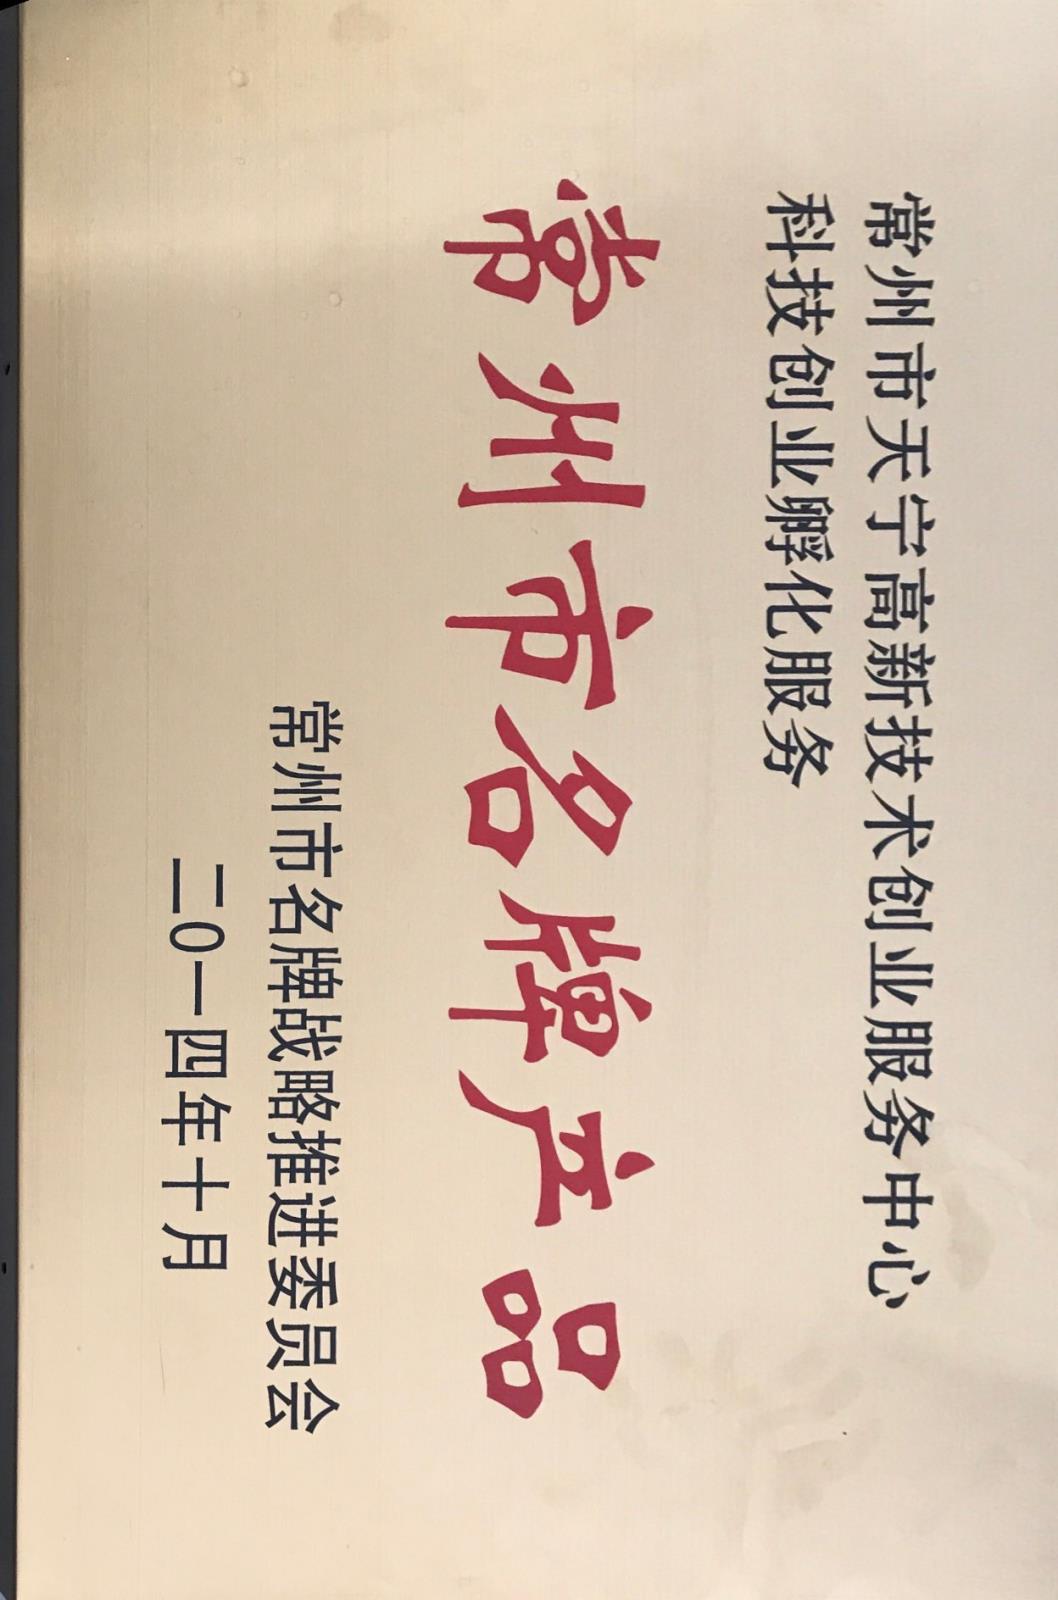 常州市天宁高新技术创业服务中心
科技创业孵化服务
常州市名牌产品
常州市名牌战略推进委员会
二〇一四年十月